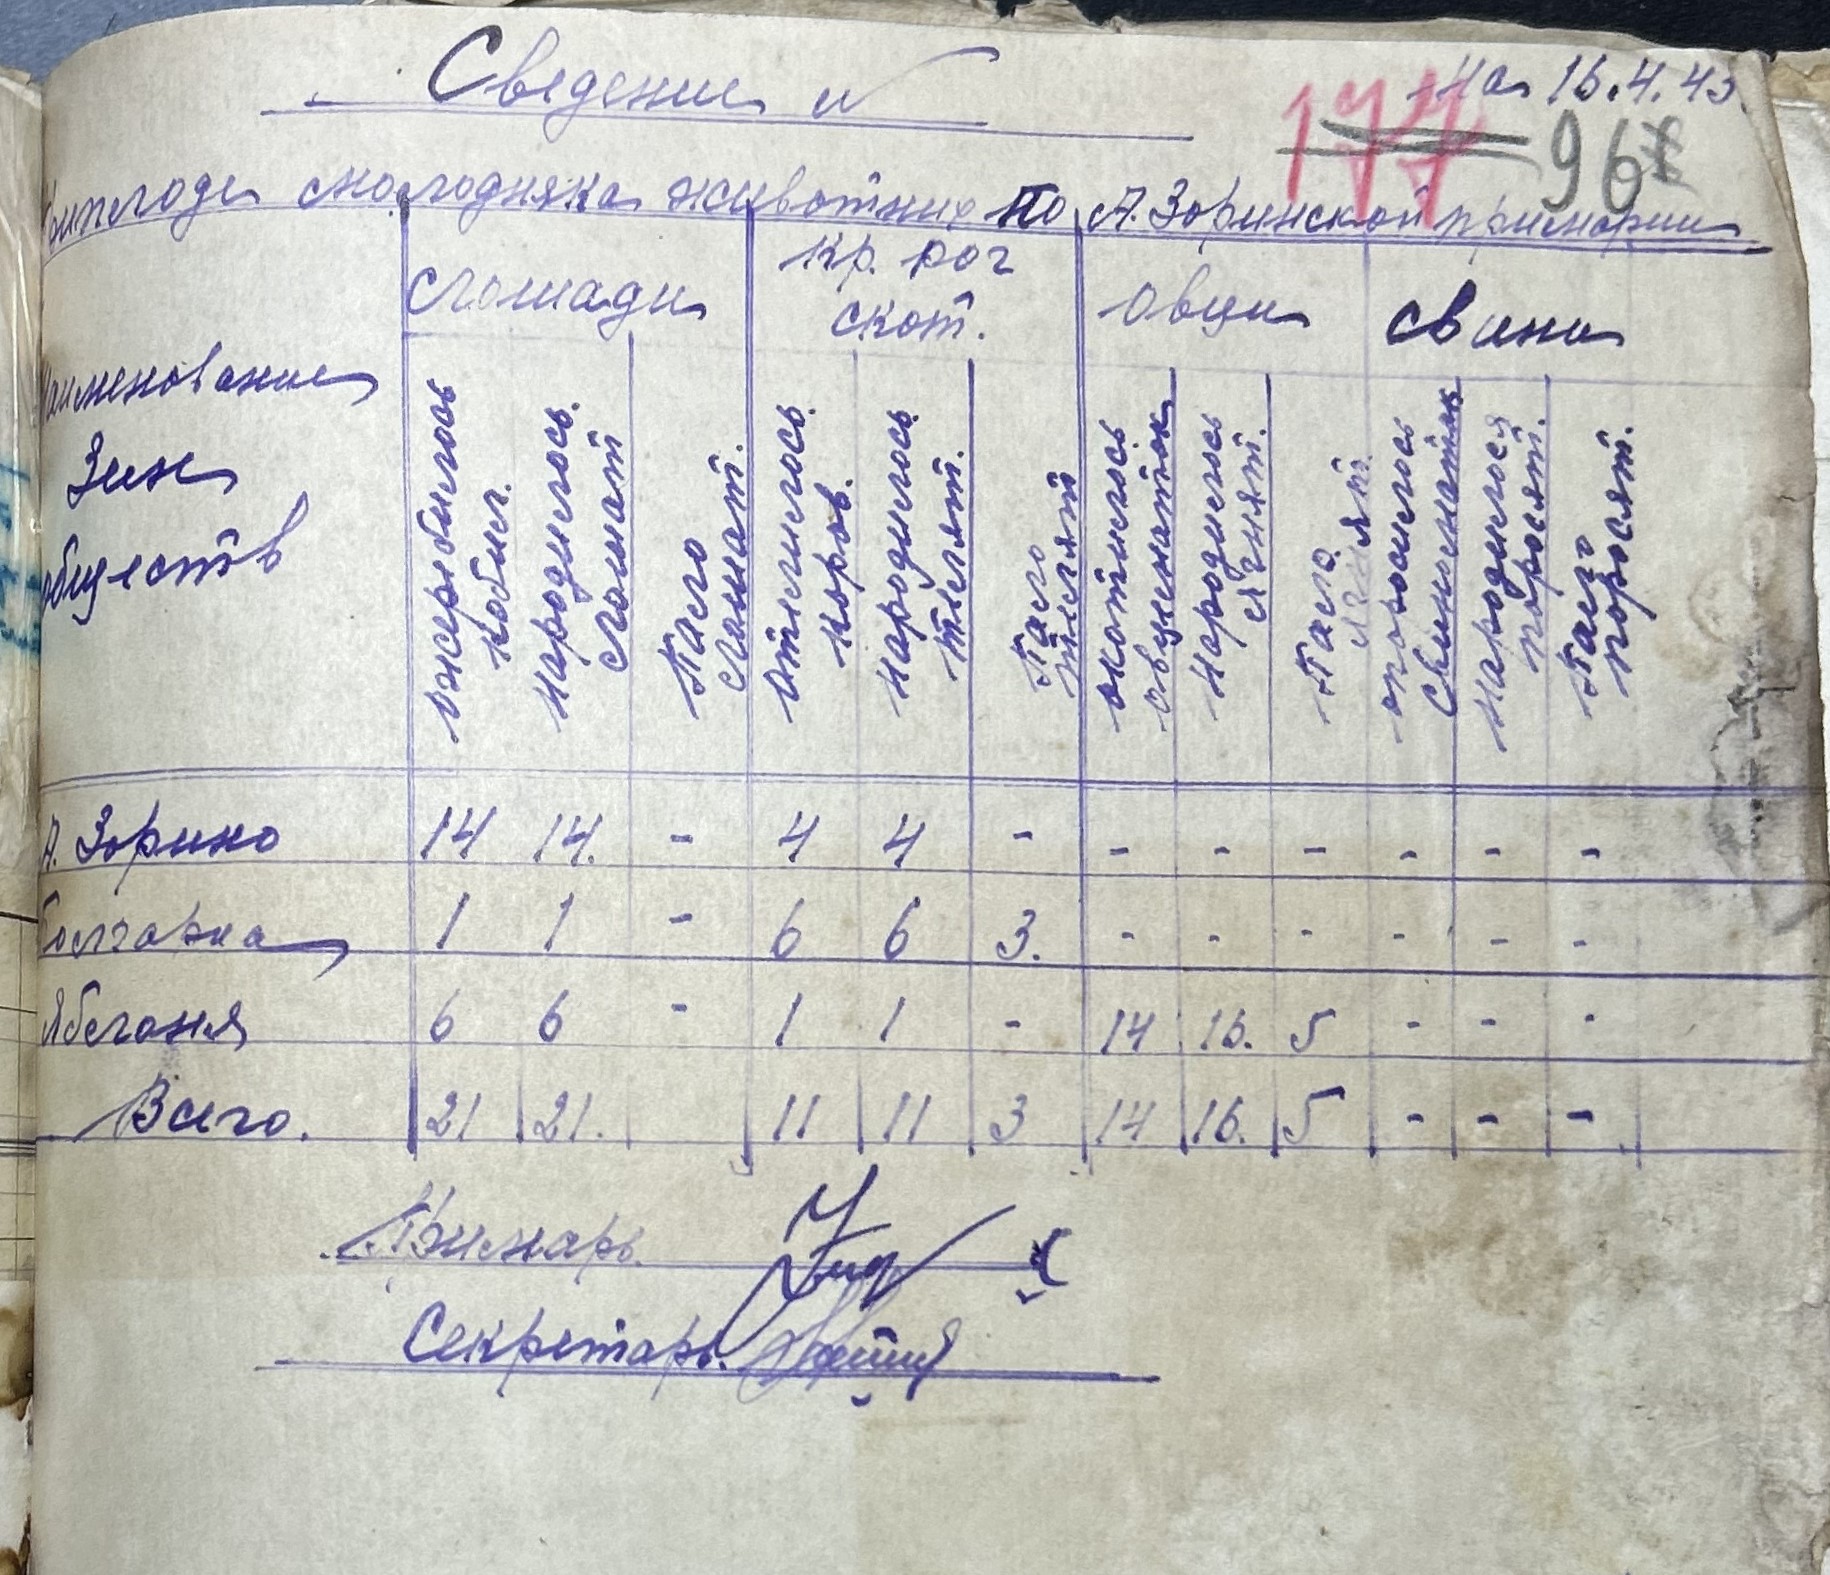 Сведение №
На 16.4.43
177 96
Приплоде молодняка животных по А. Зоринской примарии
Наименование Зем обществ
лошади
кр. рог скот.
овцы
свини
ожеребилось кобыл.
народилось лошат
Пало лошат.
Отелилось коров.
народилось телят.
Пало телят
окотилось овцематок
народилось ягнят.
Пало ягнят.
опоросилось свиноматок
народилося поросят.
Пало поросят.
А. Зорино 14 14. - 4 4 - - - - - - -
Болгарка 1 1 - 6 6 3. - - - - - -
Яблоня 6 6 - 1 1 - 14 16. 5 - - -
Всего. 21 21. 11 11 3 14 16. 5 - - -
Примарь.
Секретарь.